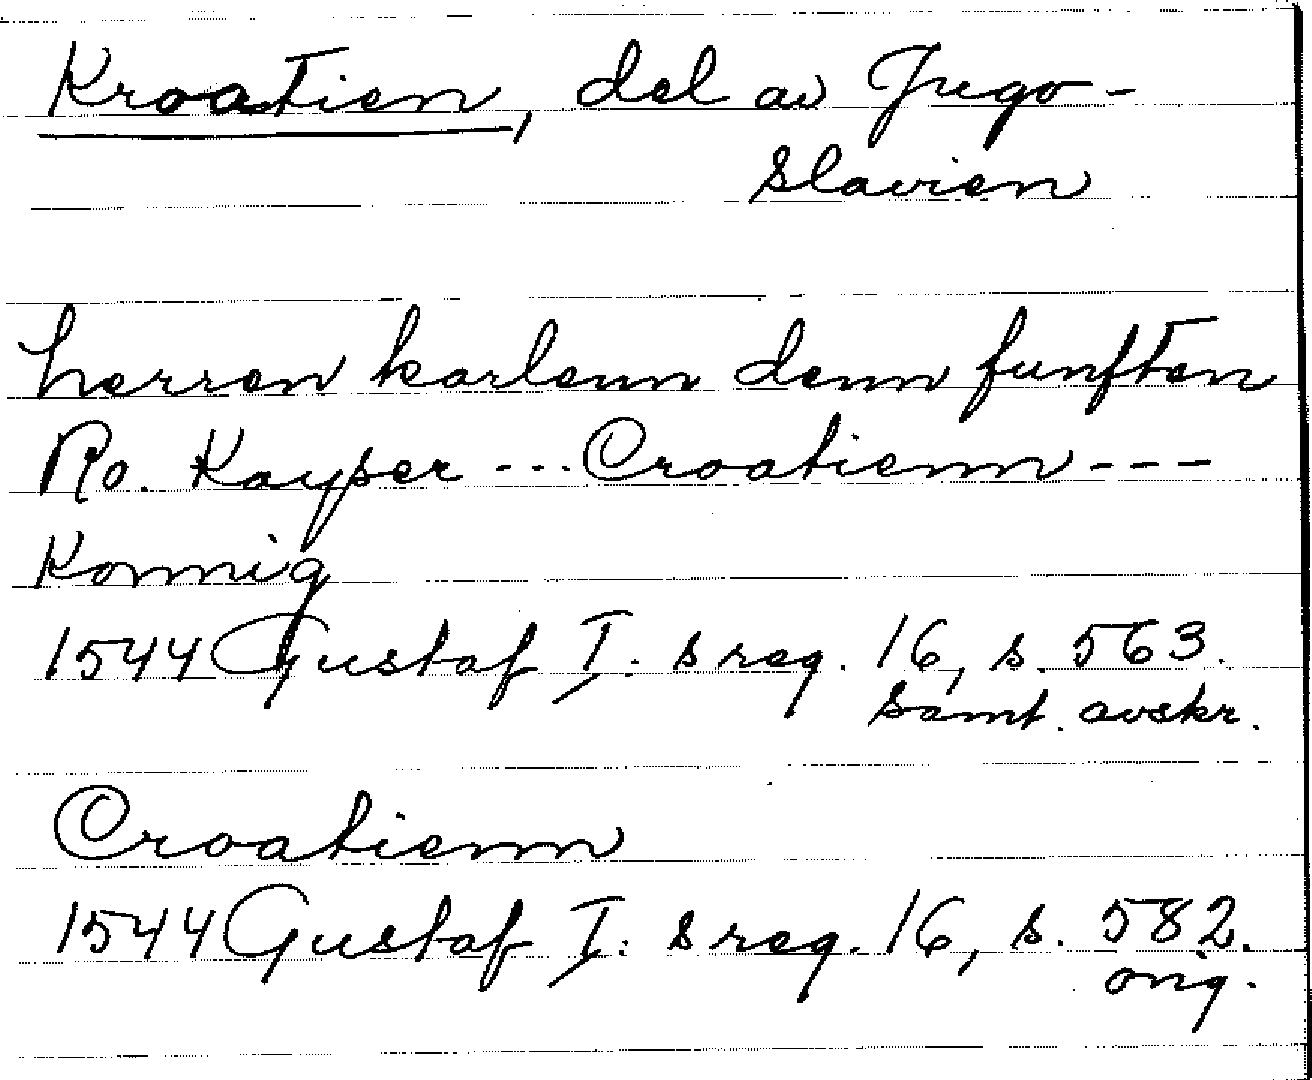 Kroatien, del av Jugo-
slavien
herren karlenn denn funften
Ro. Kayser --- Croatienn ---
Konnig
1544 Gustaf I:s reg. 16, s. 563.
Samt. avskr.
Croatienn
1544 Gustaf I:s reg. 16, s. 582.
orig.